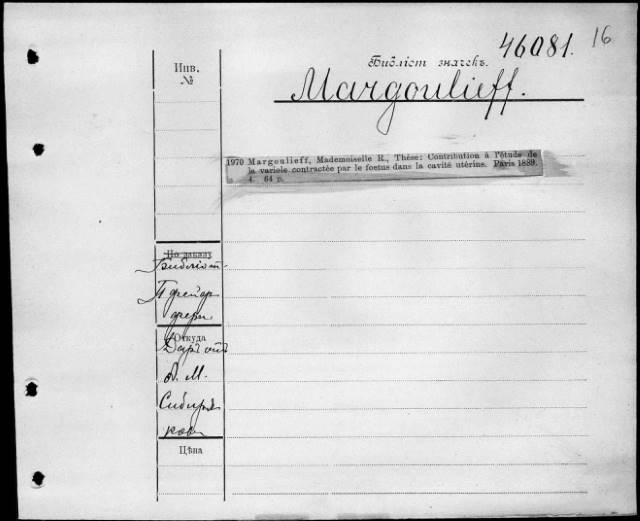 46081.
16
Инв.
№
Библіот. значекъ.
Margoulieff.
1970 Margoulieff, Mademoiselle R., Thèse: Contribution à l'étude de
la variole contractée par le foetus dans la cavité utérine. Paris 1889.
4. 64 p.
По даннымъ
Библіот.
Откуда
Даръ отъ
М.
Сибиря
кова
Цѣна